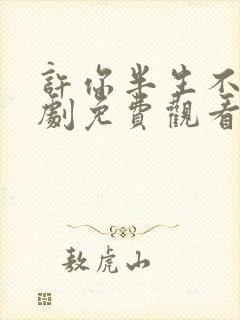 許你半生不
劇免費觀看
敖虎山